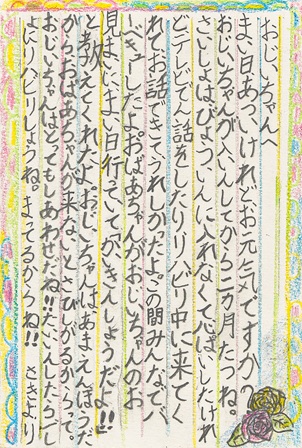 おじいちゃんへ
まい日あついけれどお元気ですか？
おじいちゃんがにゅういんしてから二ヵ月たつね。
さいしょはびょういんに入れなくて心ぱいしたけれ
ど、テレビで話をしたりリハビリ中に来てく
れてお話できてうれしかったよ。この間みんなでバー
ベキューしたよ。おばあちゃんがおじいちゃんのお
見まいによく日行っていてがきんしょうだよ!!
と教えてくれたよ。おじいちゃんはあまえんぼうだ
からおばあちゃんが来ないとさびしがるからって。
おじいちゃんはとってもしあわせだね!!たいいんしたらいっしょ
にリハビリしようね。まってるからね!! さきより